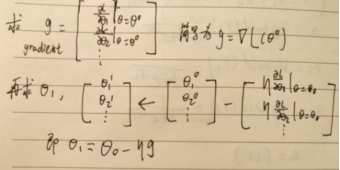 求 g = [ ∂L/∂θ₁|θ=θ⁰ ∂L/∂θ₂|θ=θ⁰ ⋮ ] 简写为 g = ∇L(θ⁰)
gradient
再求 θ₁, [ θ₁¹ θ₂¹ ⋮ ] ← [ θ₁⁰ θ₂⁰ ⋮ ] − [ η ∂L/∂θ₁|θ=θ₀ η ∂L/∂θ₂|θ=θ₀ ⋮ ]
即 θ₁ = θ₀ − ηg